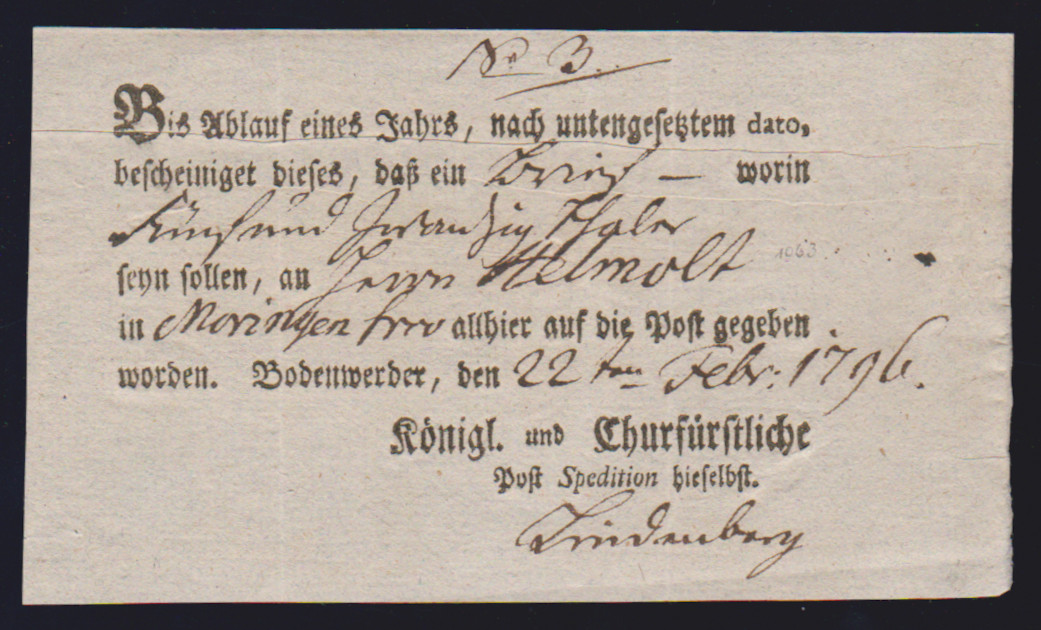 No 3.
Bis Ablauf eines Jahrs, nach untengesetztem dato,
bescheiniget dieses, daß ein Brief — worin
Fünf und Zwanzig Thaler
seyn sollen, an Herrn Helmolt 1963
in Moringen frco allhier auf die Post gegeben
worden. Bodenwerder, den 22ten Febr: 1796.
Königl. und Churfürstliche
Post Spedition hieselbst.
Lindenberg